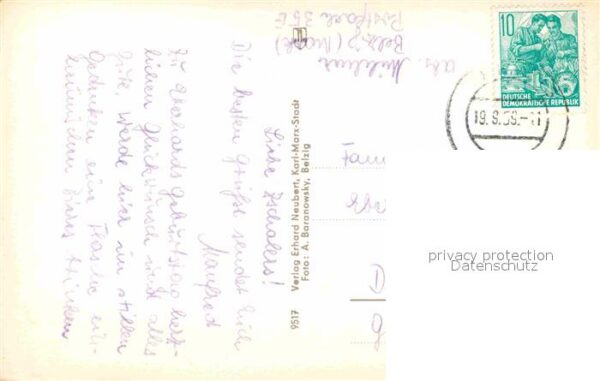 Liebe Zschalers!
Die besten Grüße sendet Euch
Manfred
Zu Eberhards Geburtstag herz-
lichen Glückwunsch und alles
Gute. Werde hier im stillen
Gedenken eine Flasche
trinken
Abs.
Belzig (Mark)
Postfach 35
9517 Verlag Erhard Neubert, Karl-Marx-Stadt
Foto: A. Baranowsky, Belzig
10
DEUTSCHE
DEMOKRATISCHE REPUBLIK
19.8.59.-11
privacy protection
Datenschutz